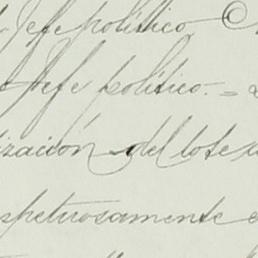 Jefe político
Jefe político. =
ización del lote
spetuosamente